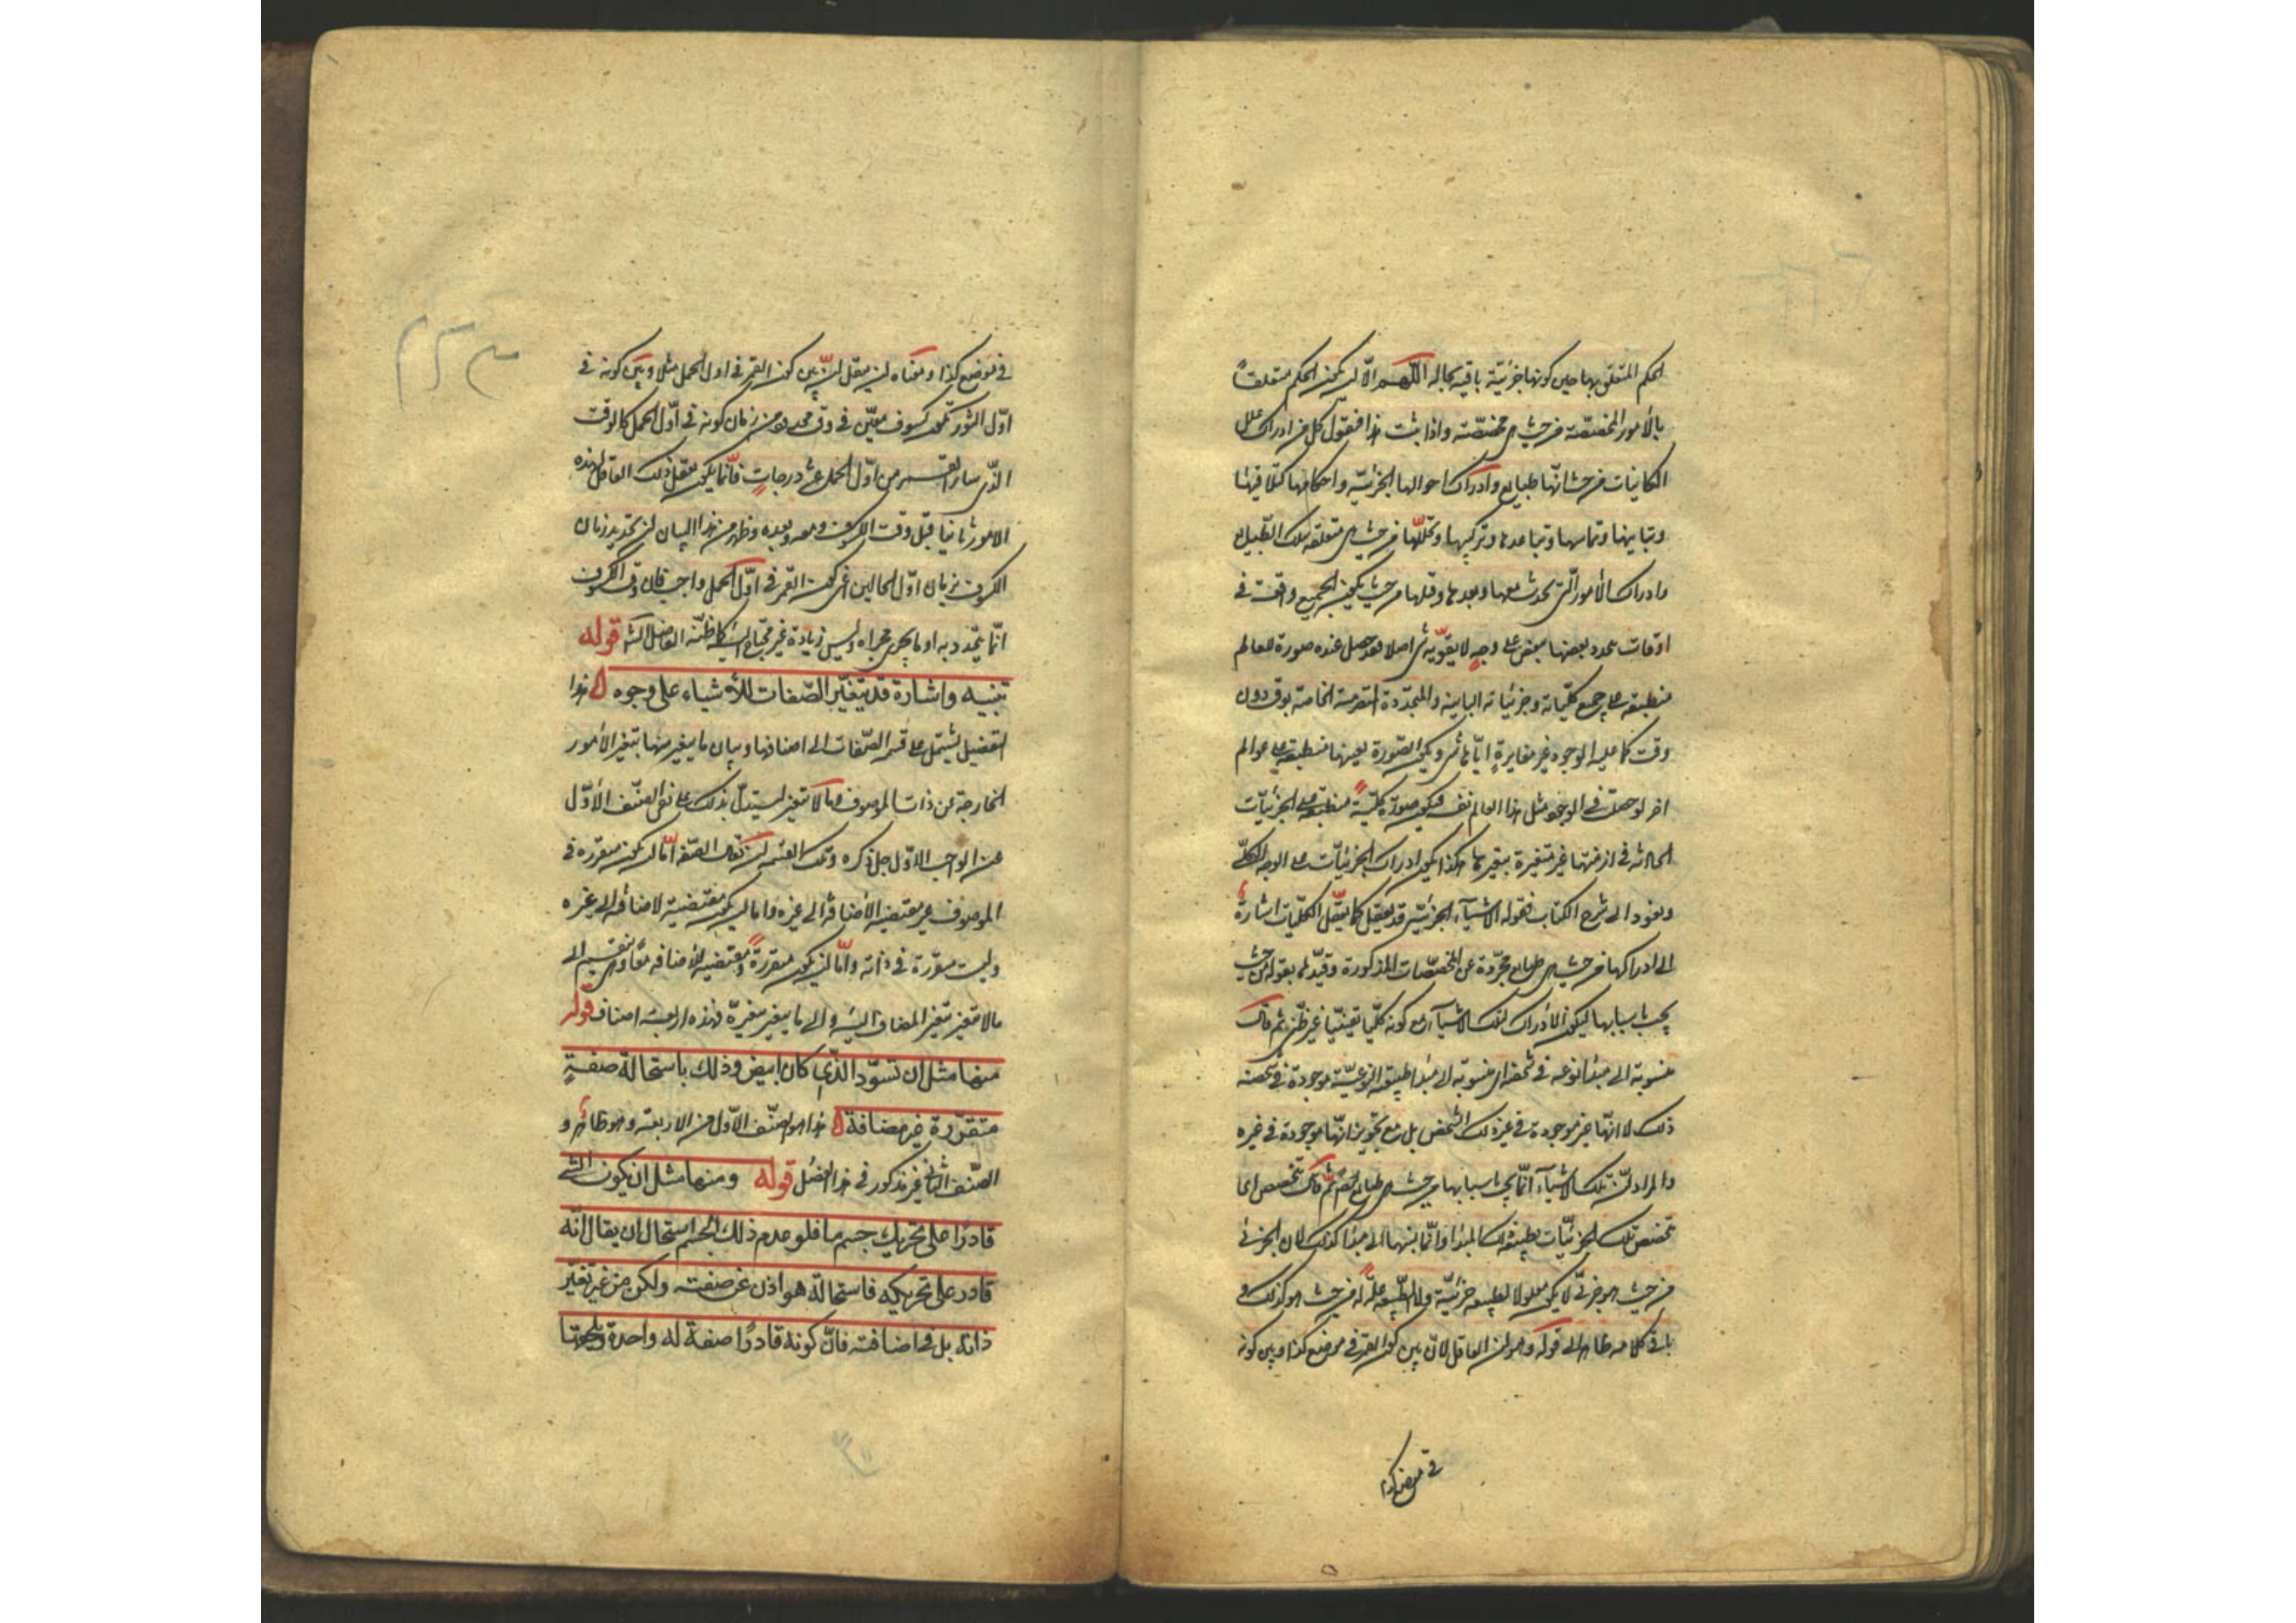 الحكم المتعلق بها حين كونها جزئية باقية بحاله اللهم الا ان يكون الحكم متعلقا
بالأمور المخصصة من حيث هي مخصصة واذا ثبت هذا فنقول كل من ادرك علل
الكائنات من حيث انها طبايع وادرك احوالها الجزئية واحكامها كتلاقيها
وتباينها وتماسها وتباعدها وتركبها وتحللها من حيث هي متعلقة بتلك الطبايع
وادرك الأمور التي تحدث معها وبعدها وقبلها من حيث يكون الجميع واقعة في
اوقات يتحدد بعضها ببعض على وجه لا يفوته شئ اصلا فقد حصل عنده صورة للعالم
منطبقة على جميع كلياته وجزئياته الثابتة والمتجددة المتصرمة الخاصة بوقت دون
وقت كما عليه الوجود غير مغايرة اياها بشئ ويكون الصورة بعينها منطبقة على عوالم
اخر لو حصلت في الوجود مثل هذا العالم نفسه فيكون صورة كلية منطبقة على الجزئيات
الحادثة في ازمنتها غير متغيرة بتغيرها هكذا يكون ادراك الجزئيات على الوجه الكلي
ونعود الى شرح الكتاب فقوله الاشياء الجزئية قد تعقل كما تعقل الكليات اشارة
الى ادراكها من حيث هي طبايع مجردة عن المخصصات المذكورة وقيدها بقوله من حيث
يجب باسبابها ليكون الأدراك لتلك الاشياء مع كونه كليا يقينيا غير ظني ثم قال
منسوبة الى مبدأ نوعه في شخصه اي منسوبة الى مبدأ طبيعته النوعية موجودة في شخصه
ذلك لا انها غير موجودة في غير ذلك الشخص بل مع تجويز انها موجودة في غيره
والمراد ان تلك الاشياء انما يجب باسبابها من حيث هي طبايع ايضا ثم قال تتخصص اي
تخصص تلك الجزئيات بطبيعة ذلك المبدأ وانما نسبها الى مبدأ كذلك لان الجزئي
من حيث هو جزئي لا يكون معلولا لطبيعة جزئية ولا الطبيعة علة له من حيث هو كذلك و
باقي كلامه ظاهر الى قوله وهو ان العاقل لان بين كون القمر في موضع كذا وبين كونه
في موضع كذا
في موضع كذا ومعناه ان من يعقل ان بين كون القمر في اول الحمل مثلا وبين كونه في
اول الثور يكون كسوف معين في وقت محدود من زمان كونه في أول الحمل كالوقت
الذي سار القمر من اول الحمل عشر درجات فانما يكون تعقل ذلك العاقل لهذه
الامور ثابتا قبل وقت الكسوف ومعه وبعده وظهر من هذا البيان ان تحديد زمان
الكسوف بزمان اول الحالين اعني كون القمر في اول الحمل واجب فان وقت الكسوف
انما يتحدد به او ما يجري مجراه وليس زيادة غير محتاج اليها كما ظنه الفاضل الشارح قوله
تنبيه واشارة قد يتغير الصفات للأشياء على وجوه هذا
الفصيل يشتمل على قسمة الصفات الى اصنافها وبيان ما يتغير منها بتغير الأمور
الخارجة عن ذات الموصوف وما لا يتغير ليستدل بذلك على نفي الصنف الأول
عن الواجب الأول جل ذكره وتلك القسمة ان يقال الصفة اما ان يكون متقررة في
الموصوف غير مقتضية الأضافة الى غيره واما ان يكون مقتضية لاضافة الى غيره
وليست متقررة في ذاته واما ان يكون متقررة ومقتضية للأضافة معا وهي تنقسم الى
ما لا يتغير بتغير المضاف اليه والى ما يتغير بتغيره فهذه اربعة اصناف قوله
منها مثل ان تسود الذي كان ابيض وذلك باستحالة صفة
متقررة غير مضافة هذا هو الصنف الأول من الاربعة وهو ظاهر و
الصنف الثاني غير مذكور في هذا الفصل قوله ومنها مثل ان يكون الشئ
قادرا على تحريك جسم ما فلو عدم ذلك الجسم استحال ان يقال انه
قادر على تحريكه فاستحالة هو اذن عن صفته ولكن من غير تغير
ذاته بل في اضافته فان كونه قادرا صفة له واحدة وتلحقها